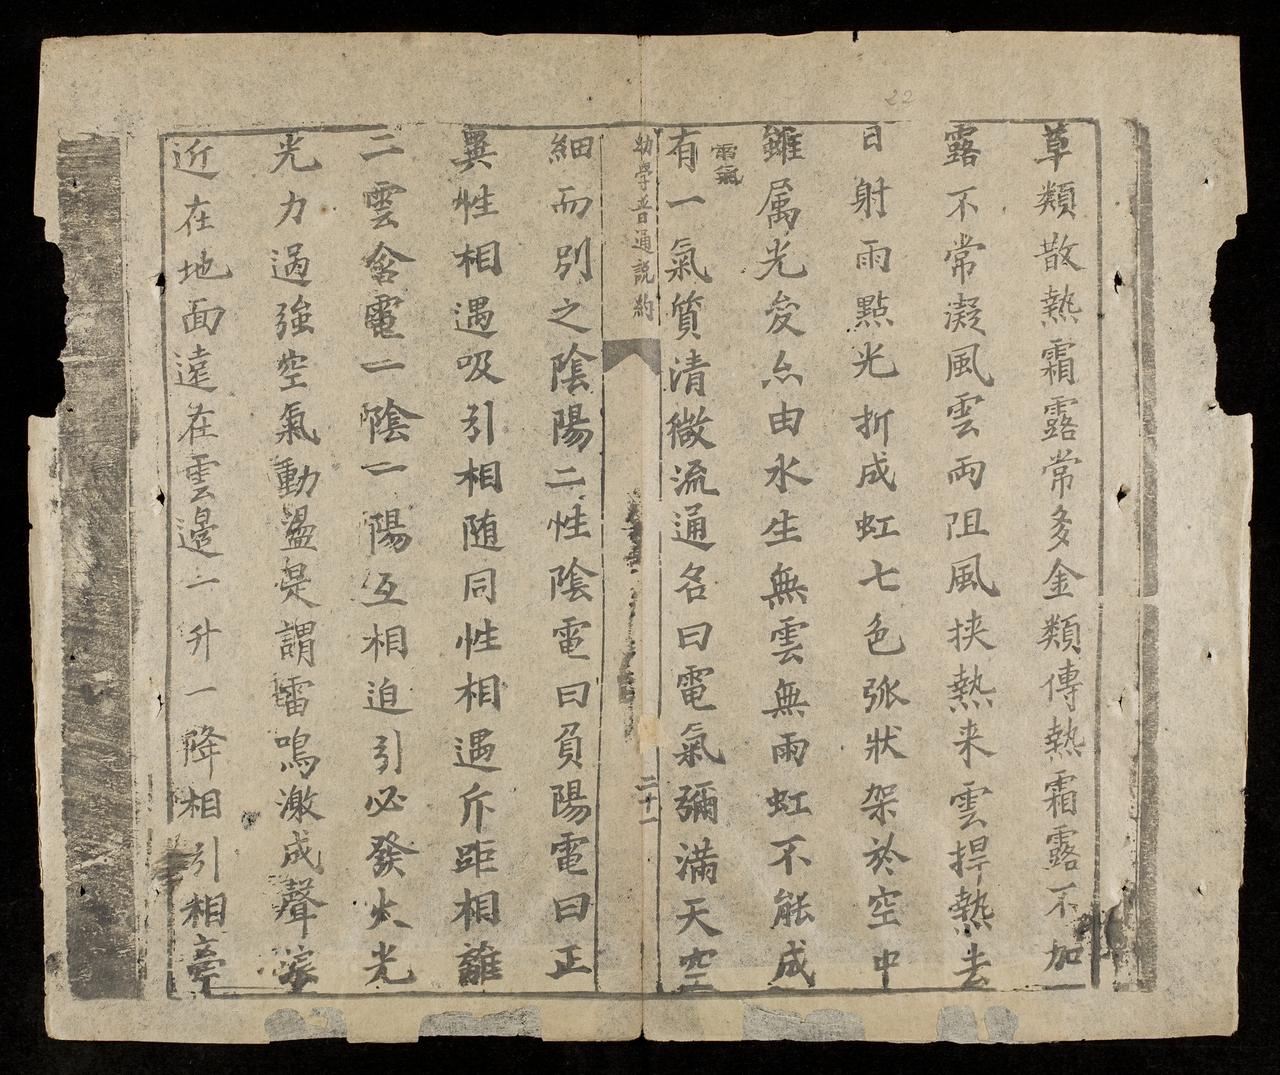 22
草類散熱霜露常多金類傳熱霜露不加
露不常凝風雲両阻風挟熱来雲捍熱去
日射雨點光折成虹七色弧狀架於空中
雖属光发亦由水生無雲無雨虹不能成
電氣
有一氣質清微流通名曰電氣彌滿天空
幼學普通説約
二十一
細而別之陰陽二性陰電曰負陽電曰正
異性相遇吸引相随同性相遇斥距相離
二雲含電一陰一陽互相迫引必發火光
光力過強空氣動盪是謂雷鳴激成聲
近在地面遠在雲邊一升一降相引相